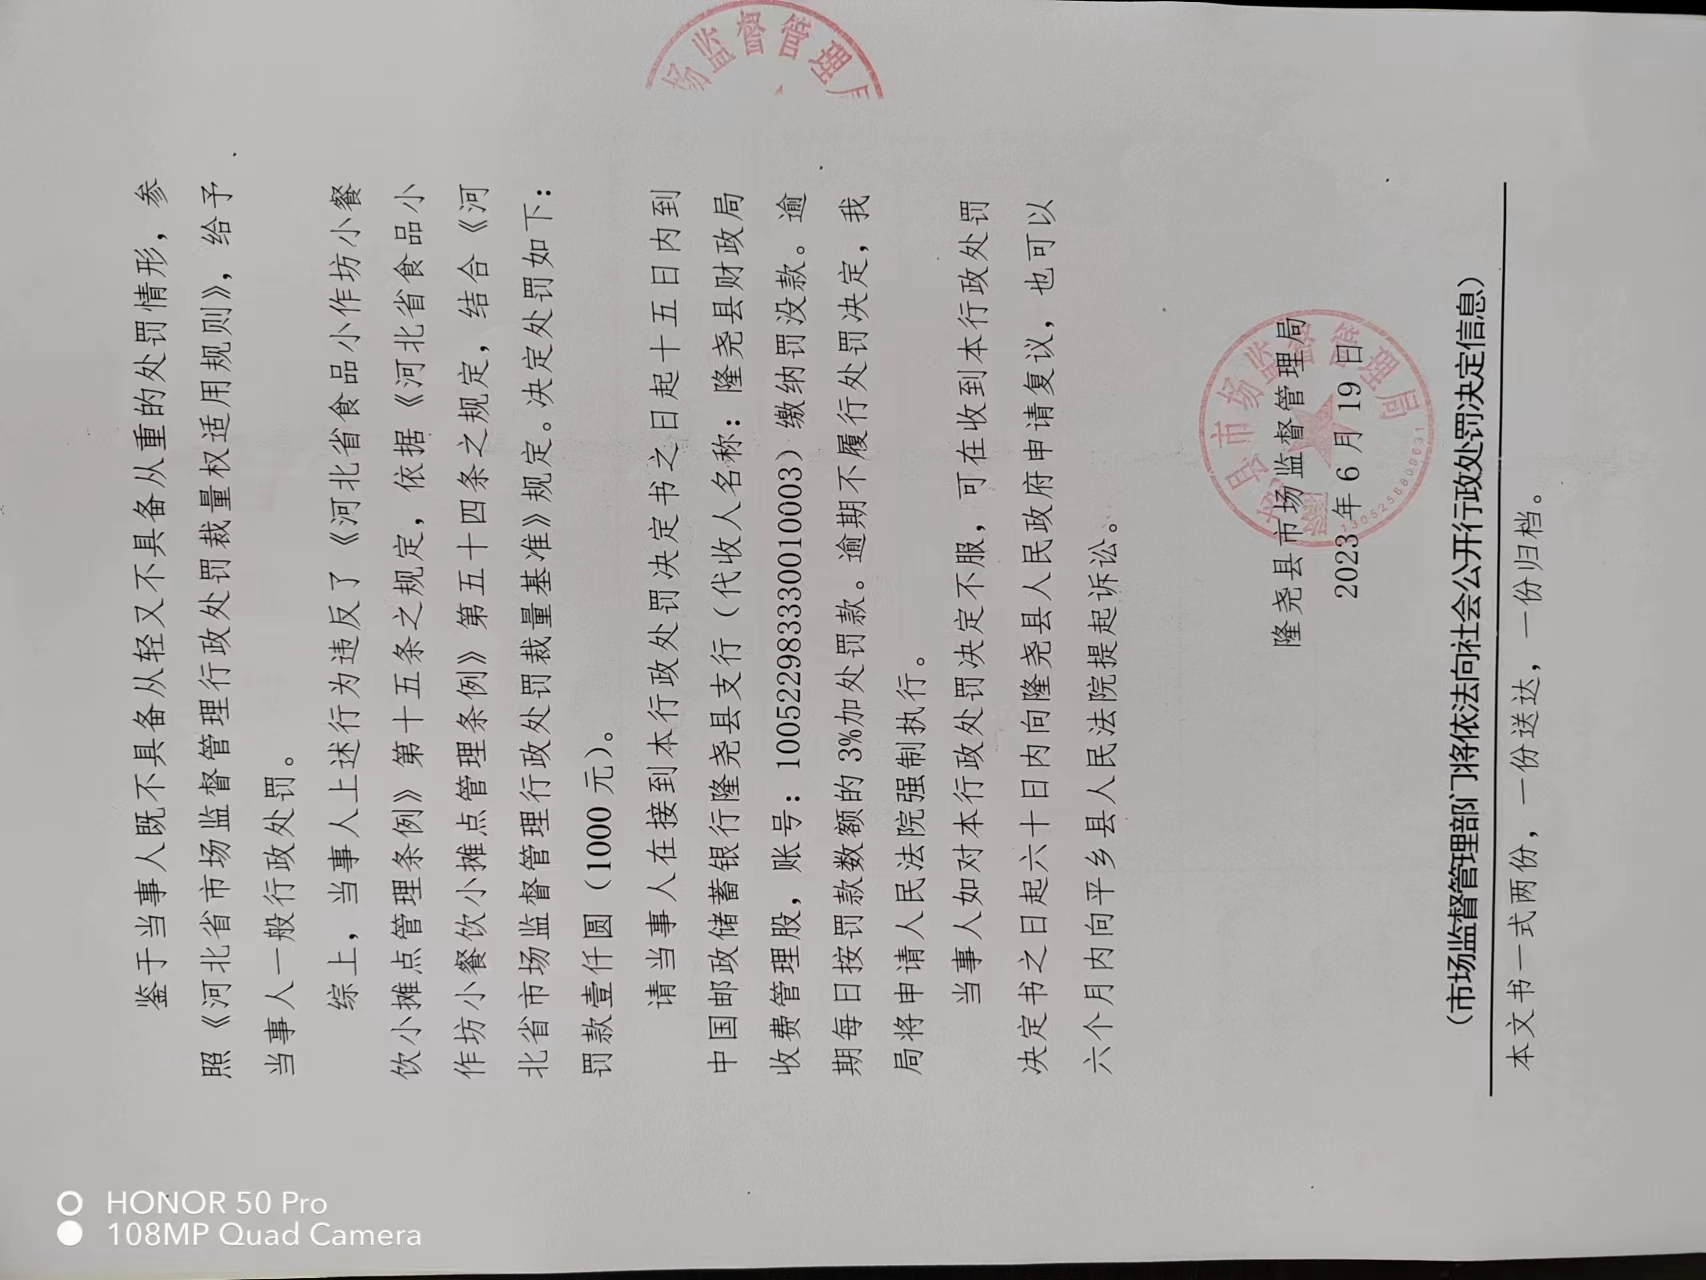 鉴于当事人既不具备从轻又不具备从重的处罚情形，参
照《河北省市场监督管理行政处罚裁量权适用规则》，给予
当事人一般行政处罚。
综上，当事人上述行为违反了《河北省食品小作坊小餐
饮小摊点管理条例》第十五条之规定，依据《河北省食品小
作坊小餐饮小摊点管理条例》第五十四条之规定，结合《河
北省市场监督管理行政处罚裁量基准》规定。决定处罚如下：
罚款壹仟圆（1000 元）。
请当事人在接到本行政处罚决定书之日起十五日内到
中国邮政储蓄银行隆尧县支行（代收人名称：隆尧县财政局
收费管理股，账号：100522983330010003）缴纳罚没款。逾
期每日按罚款数额的 3%加处罚款。逾期不履行处罚决定，我
局将申请人民法院强制执行。
当事人如对本行政处罚决定不服，可在收到本行政处罚
决定书之日起六十日内向隆尧县人民政府申请复议，也可以
六个月内向平乡县人民法院提起诉讼。
隆尧县市场监督管理局
2023年 6 月 19 日
（市场监督管理部门将依法向社会公开行政处罚决定信息）
本文书一式两份，一份送达，一份归档。
场监督管理局
县市场监督管理局
HONOR 50 Pro
108MP Quad Camera